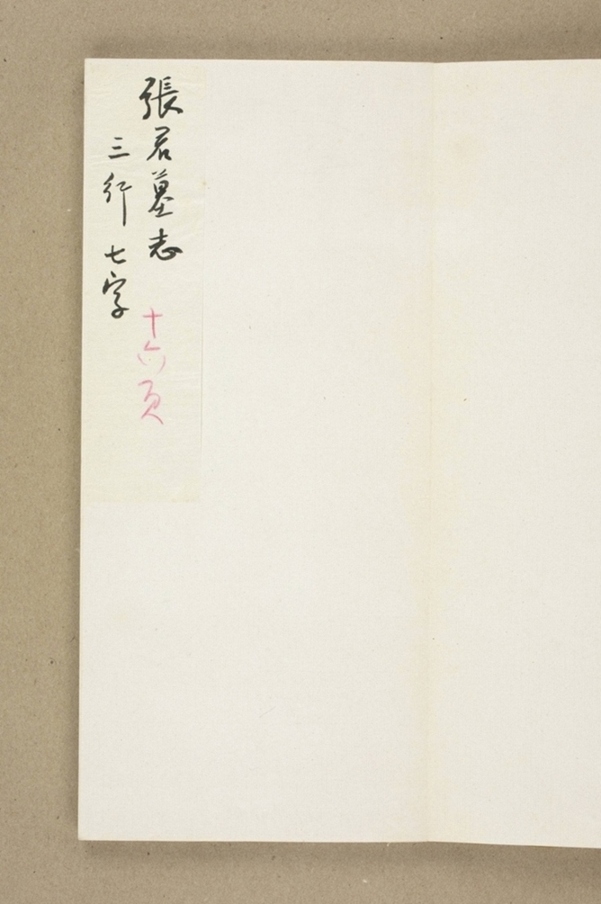 張君墓志
十六页
三行七字